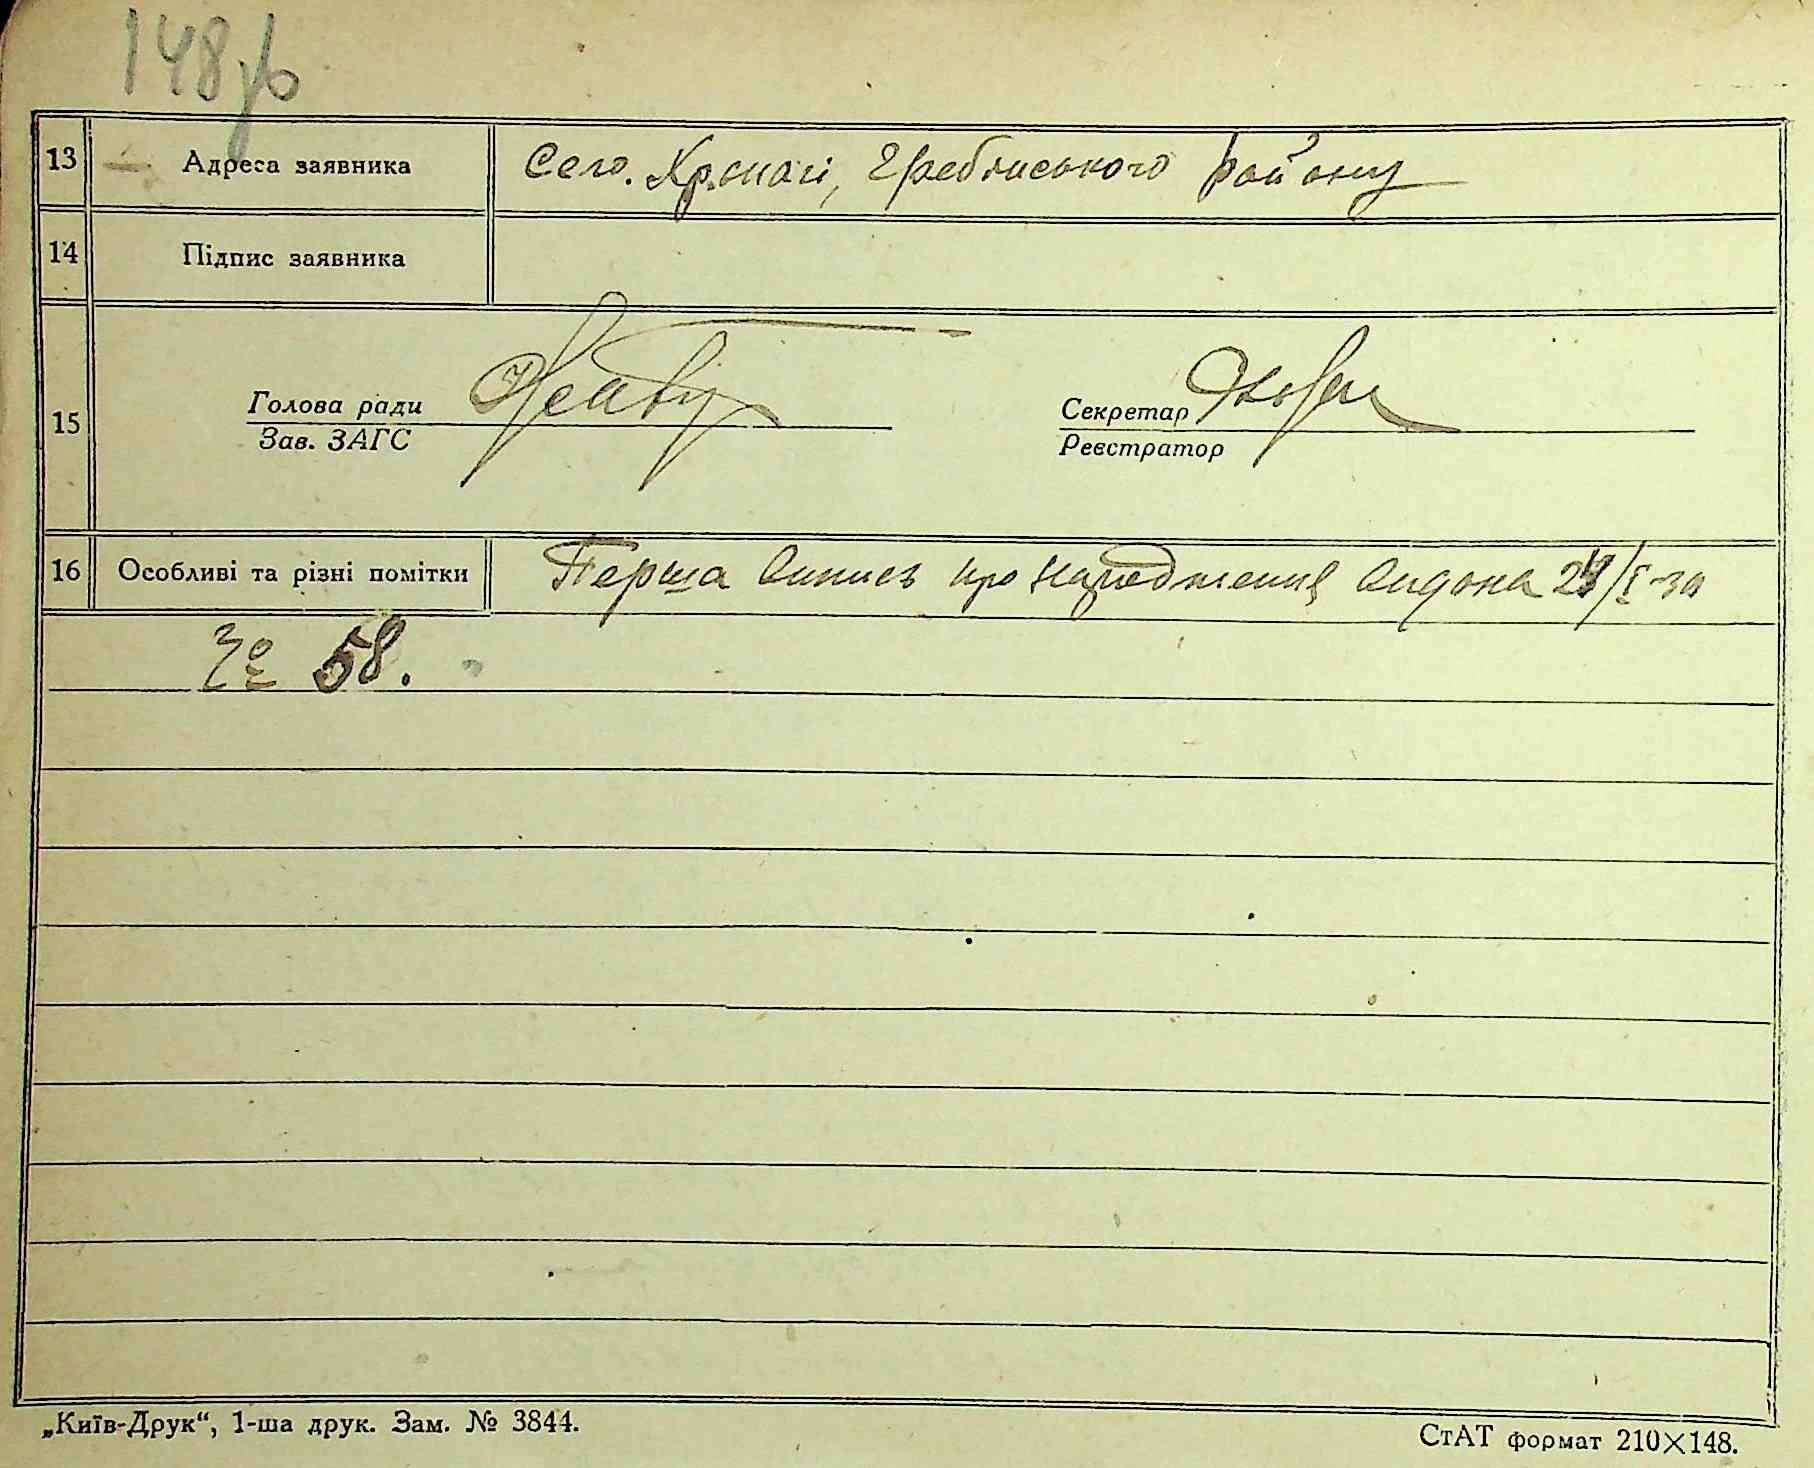 148 зв
13 Адреса заявника Село. Хрєнасі, Гребінського району
14 Підпис заявника
15 Голова ради Секретар
Зав. ЗАГС Реєстратор
16 Особливі та різні помітки Перша випись про народження видана 28/I-30
№ 58.
„Київ-Друк“, 1-ша друк. Зам. № 3844.
СтАТ формат 210×148.